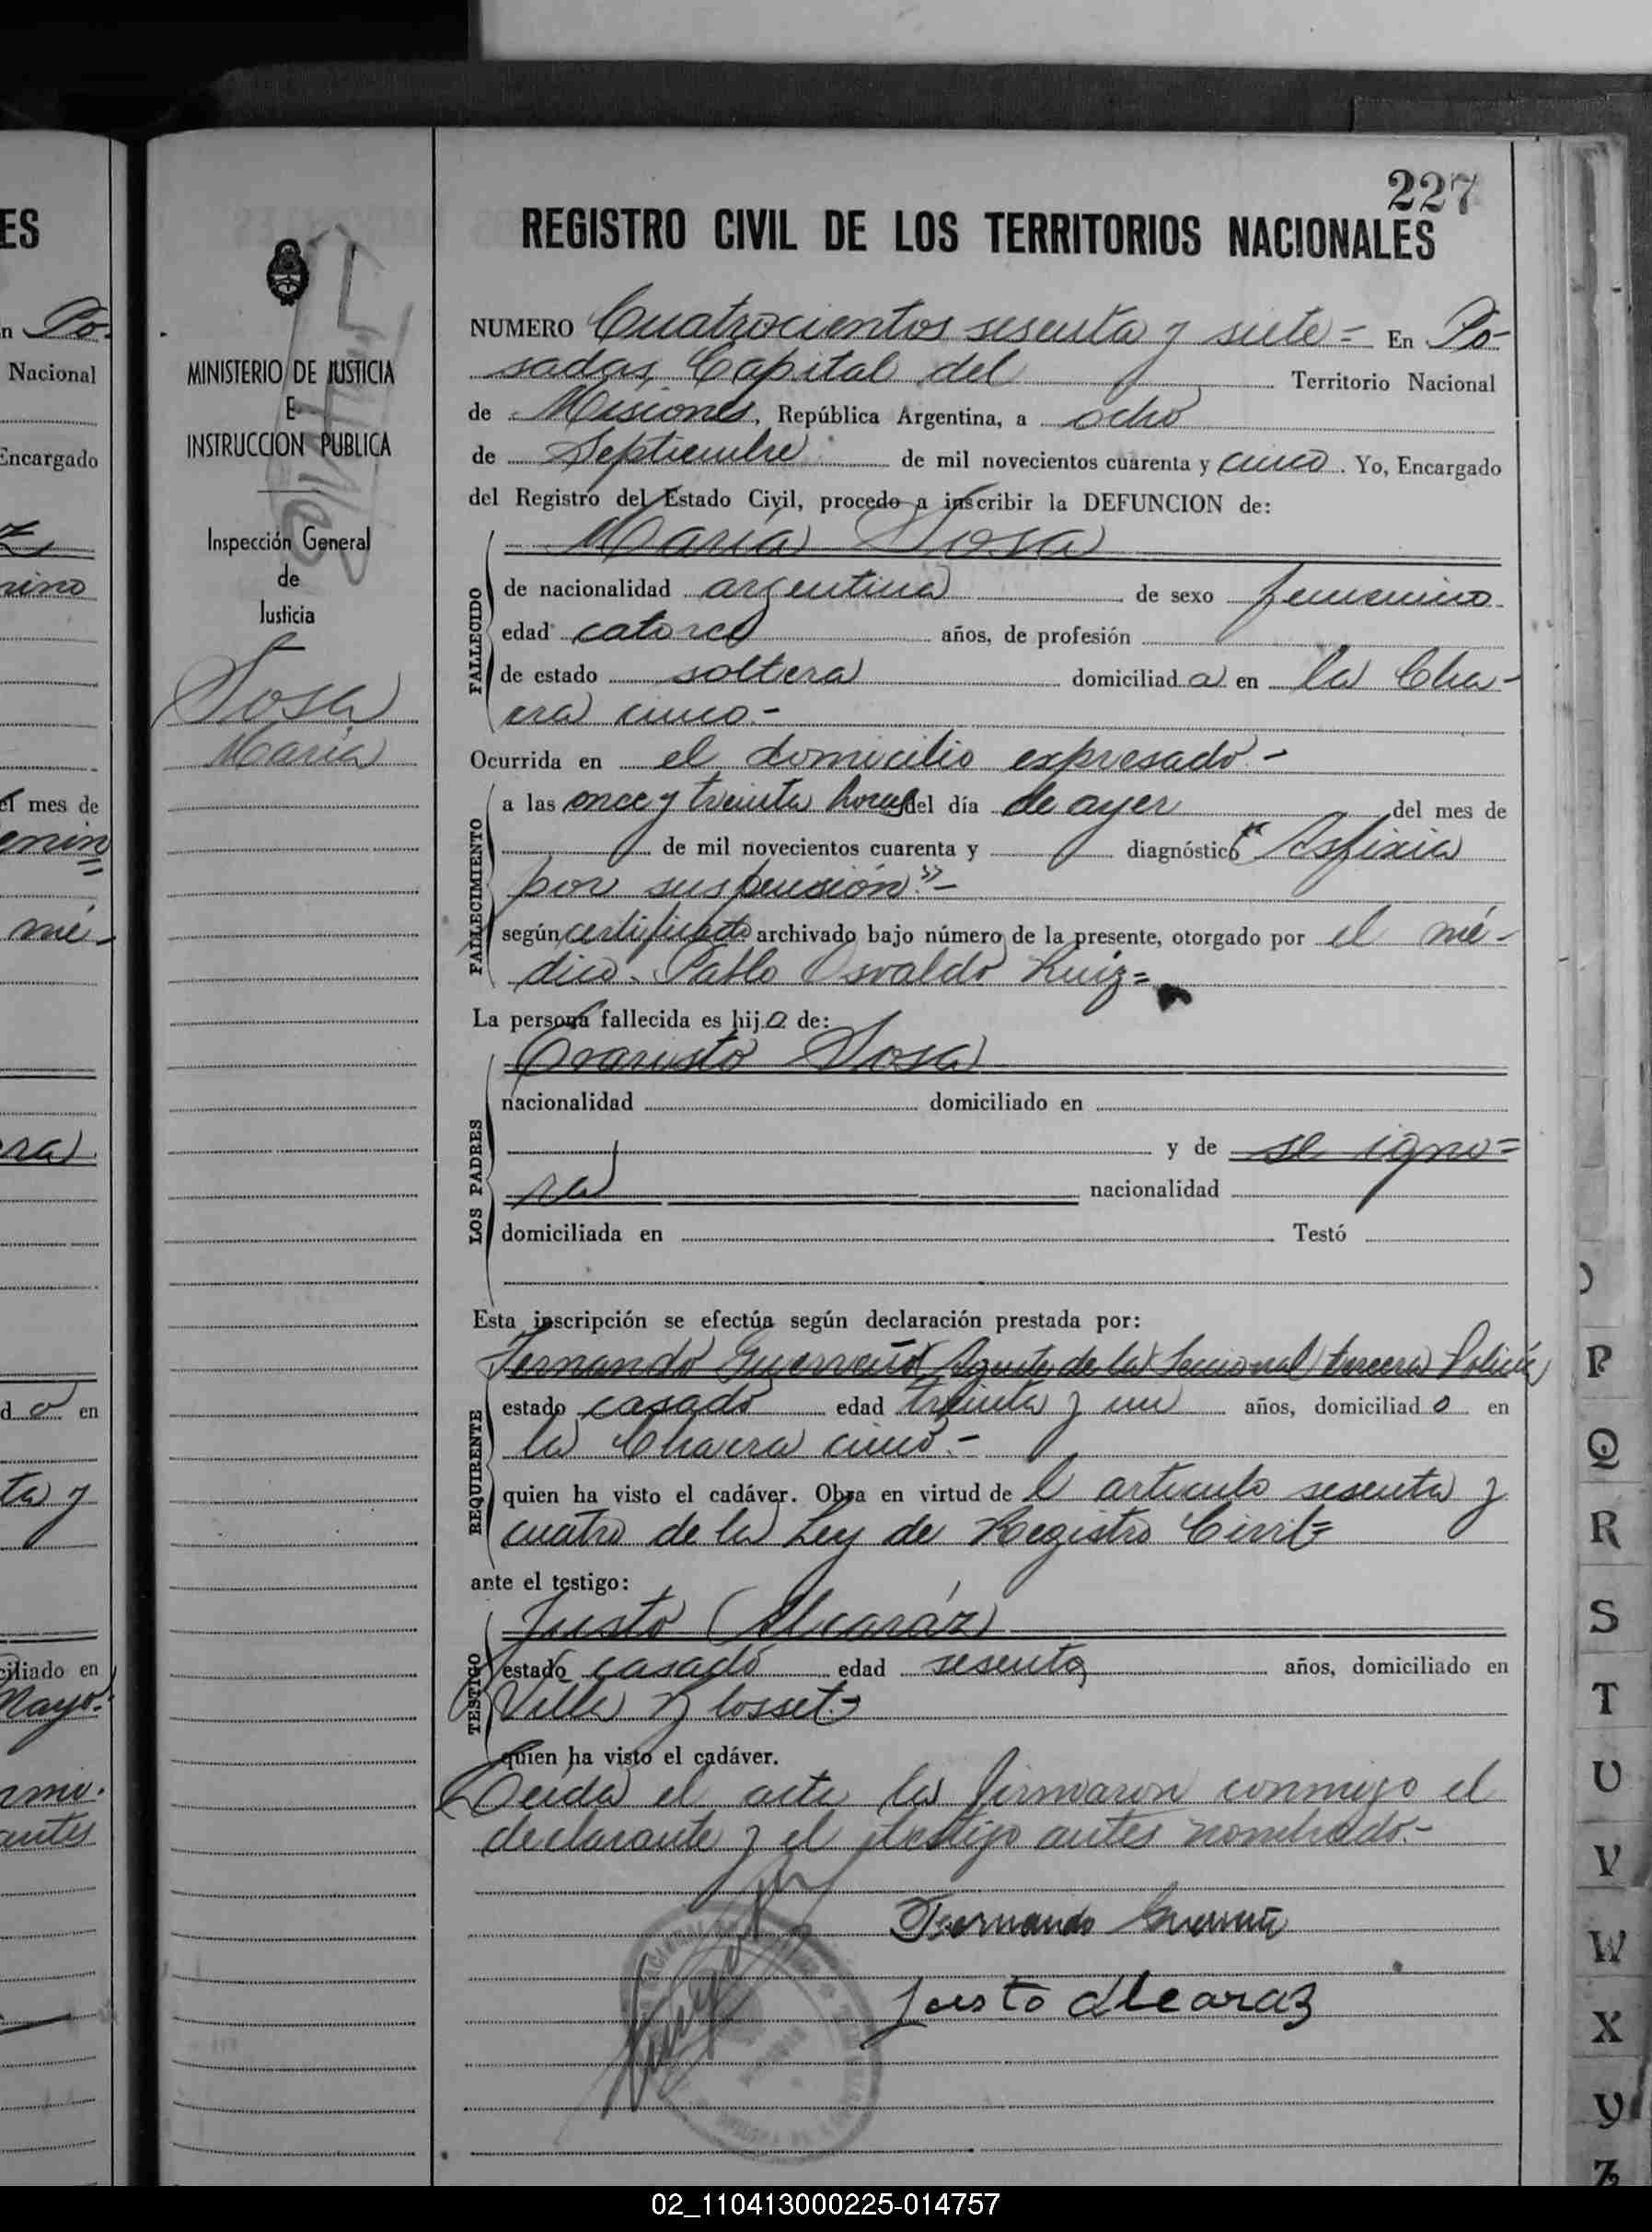 227
REGISTRO CIVIL DE LOS TERRITORIOS NACIONALES
MINISTERIO DE JUSTICIA
E
INSTRUCCION PUBLICA
Inspección General
de
Justicia
Sosa
María
NUMERO Cuatrocientos sesenta y siete= En Po-
sadas, Capital del Territorio Nacional
de Misiones, República Argentina, a ocho
de Septiembre de mil novecientos cuarenta y cinco. Yo, Encargado
del Registro del Estado Civil, procedo a inscribir la DEFUNCION de:
María Sosa
FALLECIDO
de nacionalidad argentina de sexo femenino
edad catorce años, de profesión
de estado soltera domiciliada en la Cha-
cra cinco.-
Ocurrida en el domicilio expresado.-
FALLECIMIENTO
a las once y treinta horas del día de ayer del mes de
de mil novecientos cuarenta y diagnóstico "Asfixia
por suspensión".-
según certificado archivado bajo número de la presente, otorgado por el mé-
dico Pablo Osvaldo Ruiz=
La persona fallecida es hija de:
Evaristo Sosa
LOS PADRES
nacionalidad domiciliado en
y de se igno=
ra
nacionalidad
domiciliada en Testó
Esta inscripción se efectúa según declaración prestada por:
Fernando Agente de la Seccional tercera Policía
REQUIRENTE
estado casado edad treinta y un años, domiciliado en
la Chacra cinco.-
quien ha visto el cadáver. Obra en virtud del artículo sesenta y
cuatro de la Ley de Registro Civil=
ante el testigo:
Justo Alcaráz
TESTIGO
estado casado edad sesenta años, domiciliado en
Villa
quien ha visto el cadáver.
Leída el acta, la firmaron conmigo el
declarante y el testigo antes nombrado.-
Fernando
Justo Alcaraz
ES
n Po-
Nacional
Encargado
el mes de
mé-
ra
do en
ta y
ciliado en
Mayo.-
antes
P
Q
R
S
T
U
V
W
X
Y
Z
02_110413000225-014757